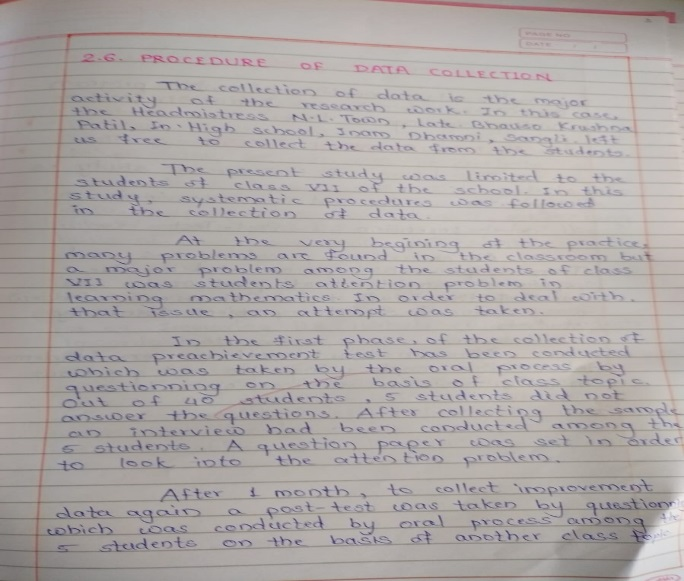 PAGE NO
DATE / /
2.6. PROCEDURE OF DATA COLLECTION
The collection of data is the major
activity of the research work. In this case,
the Headmistress N.L. Town, Late Bhauso Krushna
Patil, In. High school, Inam Dhamni, Sangli left
us free to collect the data from the students.
The present study was limited to the
students of class VII of the school. In this
study, systematic procedures was followed
in the collection of data.
At the very begining of the practice,
many problems are found in the classroom but
a major problem among the students of class
VII was students attention problem in
learning mathematics. In order to deal with
that issue, an attempt was taken.
In the first phase, of the collection of
data preachievement test has been conducted
which was taken by the oral process by
questionning on the basis of class topic.
Out of 40 students, 5 students did not
answer the questions. After collecting the sample
an interview had been conducted among the
5 students. A question paper was set in order
to look into the attention problem.
After 1 month, to collect improvement
data again a post-test was taken by
which was conducted by oral process among
5 students on the basis of another class